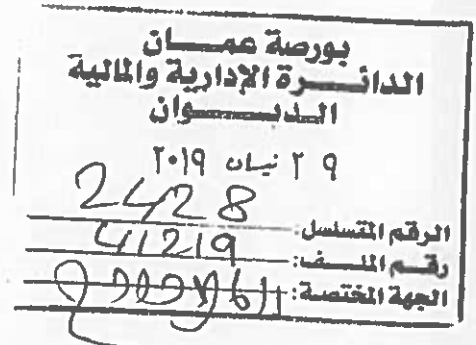 بورصة عمان
الدائرة الإدارية والمالية
الديوان
٢٩ نيسان ٢٠١٩
2428
الرقم المتسلسل:
41219
رقم الملف:
الجهة المختصة: